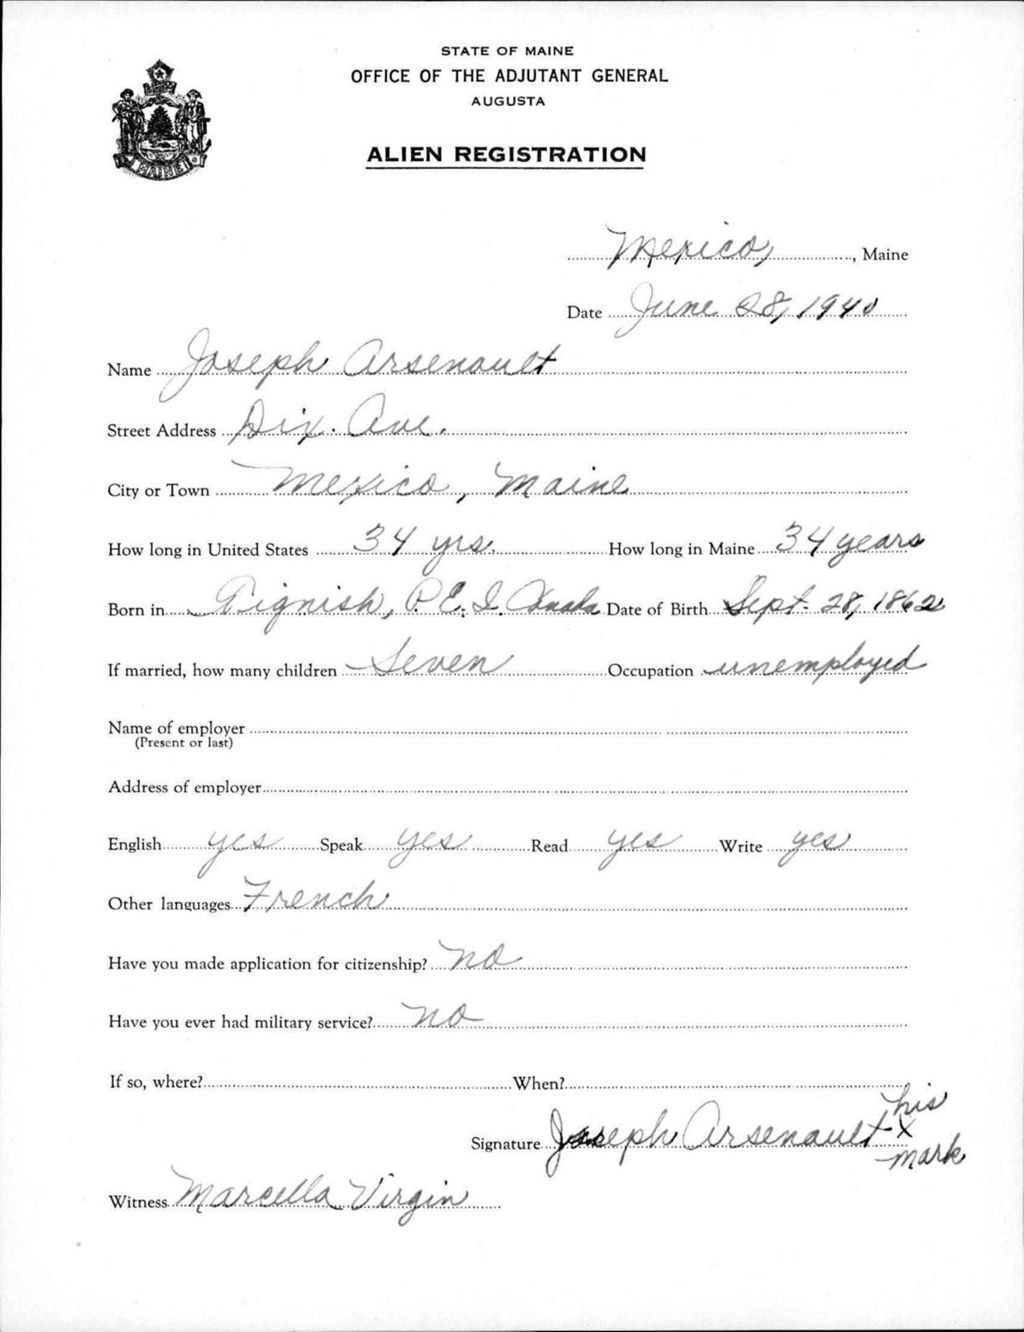 STATE OF MAINE
OFFICE OF THE ADJUTANT GENERAL
AUGUSTA
ALIEN REGISTRATION
MAINE
Mexico, , Maine
Date June 28, 1940
Name Joseph Arsenault
Street Address Dix. Ave.
City or Town Mexico, Maine
How long in United States 34 yrs. How long in Maine 34 years
Born in Tignish, P.E.I. Canada Date of Birth Sept. 28, 1862
If married, how many children Seven Occupation unemployed
Name of employer
(Present or last)
Address of employer
English yes Speak yes Read yes Write yes
Other languages French
Have you made application for citizenship? no
Have you ever had military service? no
If so, where? When?
Signature Joseph Arsenault his x mark
Witness Marcella Virgin